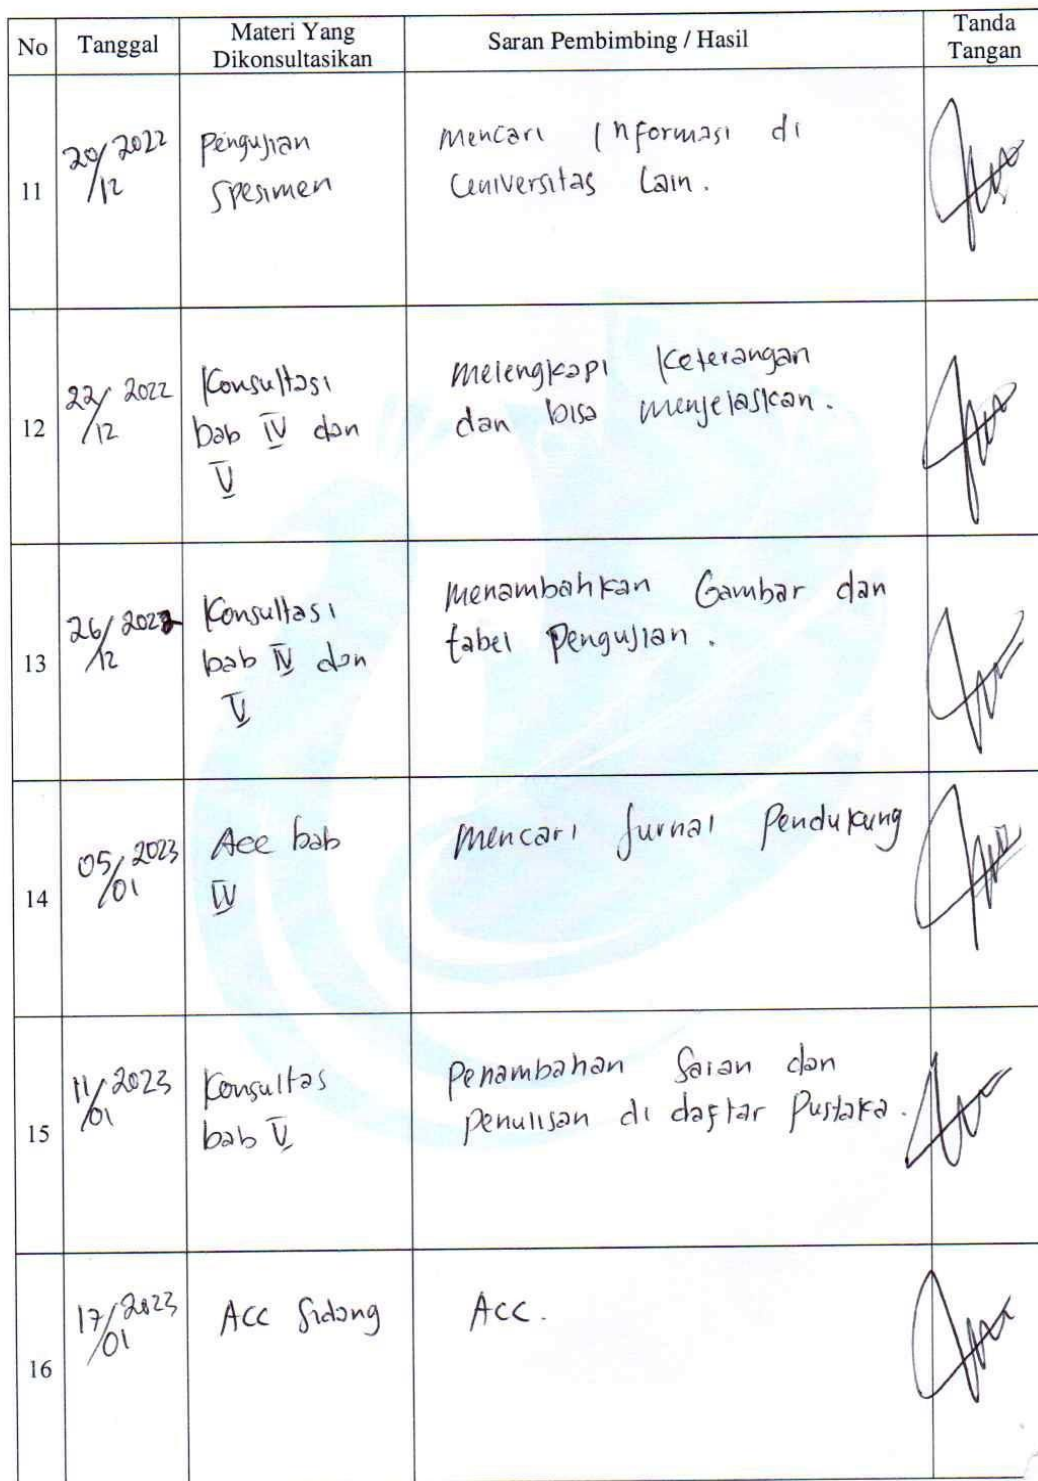 No Tanggal Materi Yang Dikonsultasikan Saran Pembimbing / Hasil Tanda Tangan
11
20/12 2022
Pengujian
Spesimen
Mencari Informasi di
Universitas Lain.
12
22/12 2022
Konsultasi
bab IV dan
V
Melengkapi Keterangan
dan bisa menjelaskan.
13
26/12 2022
Konsultasi
bab IV dan
V
Menambahkan Gambar dan
tabel Pengujian.
14
05/01 2023
Acc bab
IV
Mencari Jurnal Pendukung
15
11/01 2023
Konsultas
bab V
Penambahan Saran dan
Penulisan di daftar Pustaka.
16
17/01 2023
ACC Sidang
ACC.